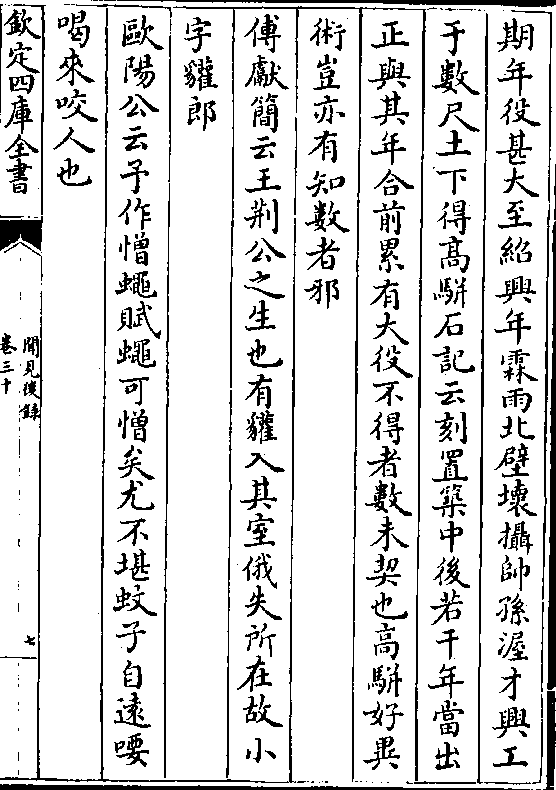 期年役甚大至紹興年霖雨北壁壞攝帥孫渥才興工
于數尺土下得髙駢石記云刻置築中後若干年當出
正與其年合前累有大役不得者數未契也髙駢好異
術豈亦有知數者邪
傅獻簡云王荆公之生也有貛入其室俄失所在故小
字貛郎
歐陽公云予作憎蠅賦蠅可憎矣尤不堪蚊子自逺嘤
喝來咬人也
欽定四庫全書
聞見後錄
卷三十
七